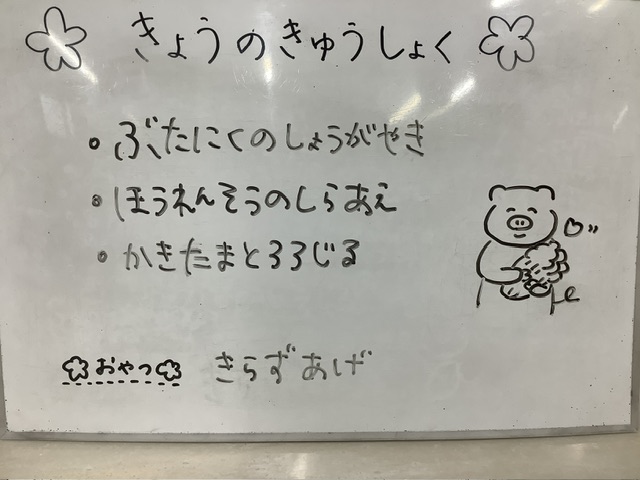 きょうのきゅうしょく
・ぶたにくのしょうがやき
・ほうれんそうのしらあえ
・かきたまとろろじる
おやつ きらずあげ